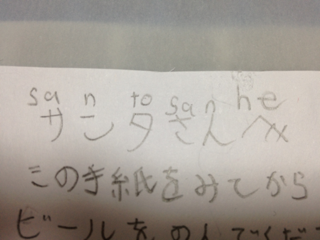 sa n to sa n he
サンタさんへ
この手紙をみてから
ビールをのんでくださ